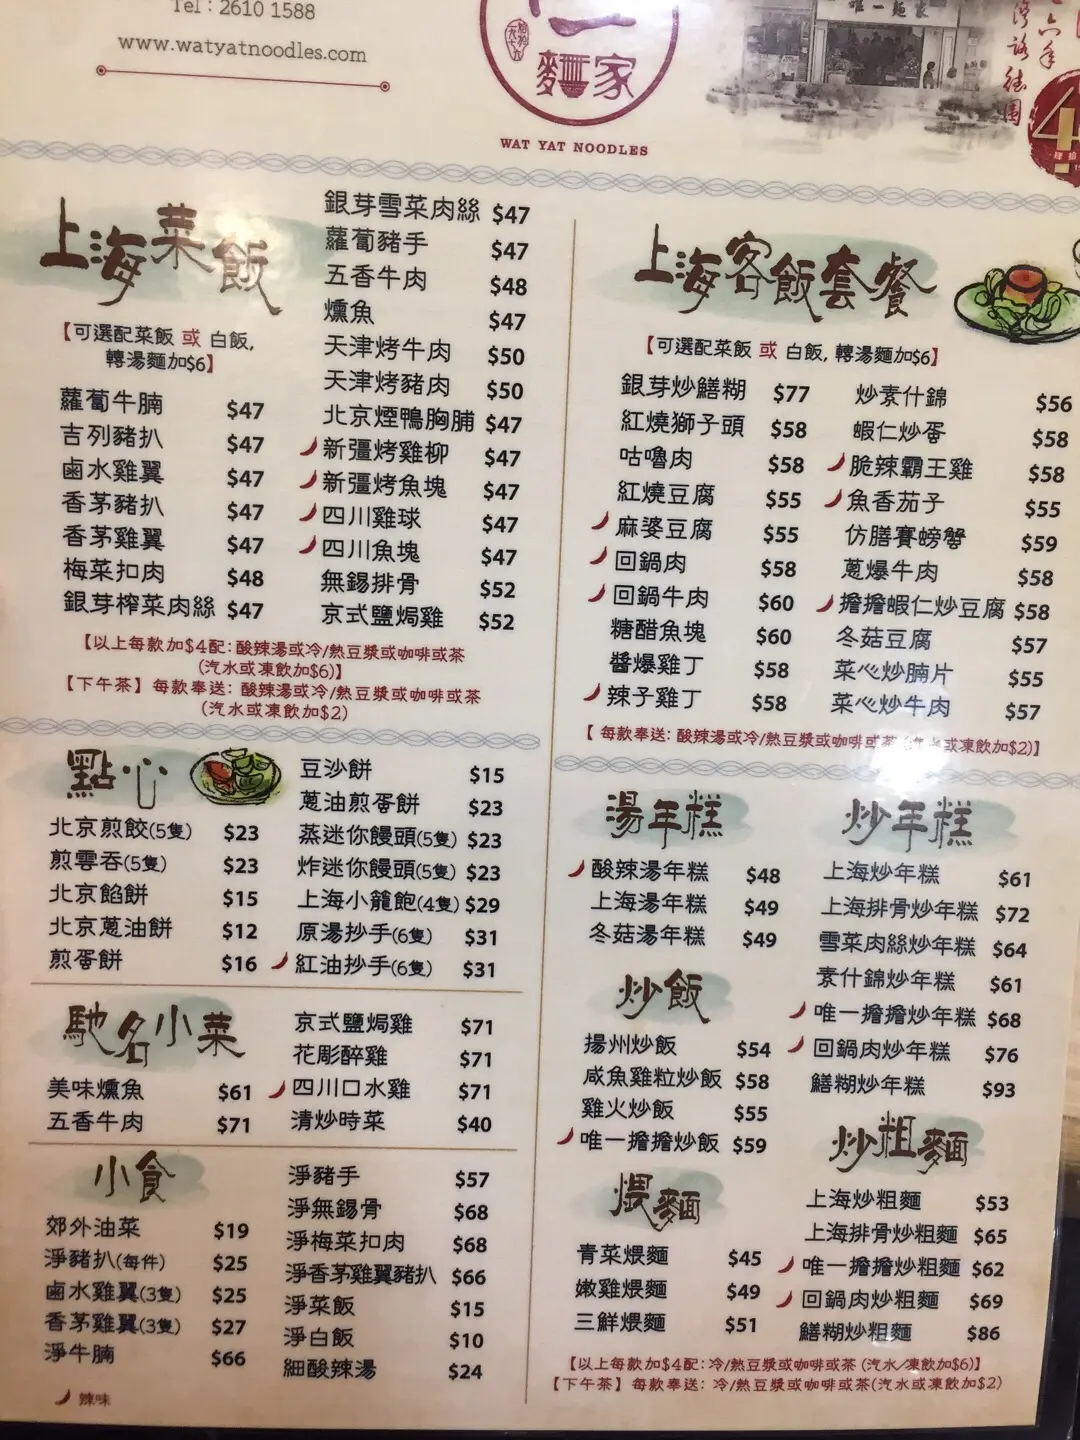 Tel : 2610 1588
www.watyatnoodles.com
麵家
WAT YAT NOODLES
唯一麵家
上海菜飯
【可選配菜飯 或 白飯,
轉湯麵加$6】
蘿蔔牛腩 $47
吉列豬扒 $47
鹵水雞翼 $47
香茅豬扒 $47
香茅雞翼 $47
梅菜扣肉 $48
銀芽榨菜肉絲 $47
銀芽雪菜肉絲 $47
蘿蔔豬手 $47
五香牛肉 $48
燻魚 $47
天津烤牛肉 $50
天津烤豬肉 $50
北京煙鴨胸脯 $47
新彊烤雞柳 $47
新彊烤魚塊 $47
四川雞球 $47
四川魚塊 $47
無錫排骨 $52
京式鹽焗雞 $52
【以上每款加$4配: 酸辣湯或冷/熱豆漿或咖啡或茶
(汽水或凍飲加$6)】
【下午茶】每款奉送: 酸辣湯或冷/熱豆漿或咖啡或茶
(汽水或凍飲加$2)
點心
北京煎餃(5隻) $23
煎雲吞(5隻) $23
北京餡餅 $15
北京蔥油餅 $12
煎蛋餅 $16
豆沙餅 $15
蔥油煎蛋餅 $23
蒸迷你饅頭(5隻) $23
炸迷你饅頭(5隻) $23
上海小籠飽(4隻) $29
原湯抄手(6隻) $31
紅油抄手(6隻) $31
馳名小菜
美味燻魚 $61
五香牛肉 $71
京式鹽焗雞 $71
花彫醉雞 $71
四川口水雞 $71
清炒時菜 $40
小食
郊外油菜 $19
淨豬扒(每件) $25
鹵水雞翼(3隻) $25
香茅雞翼(3隻) $27
淨牛腩 $66
淨豬手 $57
淨無錫骨 $68
淨梅菜扣肉 $68
淨香茅雞翼豬扒 $66
淨菜飯 $15
淨白飯 $10
細酸辣湯 $24
辣味
上海客飯套餐
【可選配菜飯 或 白飯, 轉湯麵加$6】
銀芽炒鱔糊 $77
紅燒獅子頭 $58
咕嚕肉 $58
紅燒豆腐 $55
麻婆豆腐 $55
回鍋肉 $58
回鍋牛肉 $60
糖醋魚塊 $60
醬爆雞丁 $58
辣子雞丁 $58
炒素什錦 $56
蝦仁炒蛋 $58
脆辣霸王雞 $58
魚香茄子 $55
仿膳賽螃蟹 $59
蔥爆牛肉 $58
擔擔蝦仁炒豆腐 $58
冬菇豆腐 $57
菜心炒腩片 $55
菜心炒牛肉 $57
【 每款奉送: 酸辣湯或冷/熱豆漿或咖啡或茶 (汽水或凍飲加$2)】
湯年糕
酸辣湯年糕 $48
上海湯年糕 $49
冬菇湯年糕 $49
炒飯
揚州炒飯 $54
咸魚雞粒炒飯 $58
雞火炒飯 $55
唯一擔擔炒飯 $59
煨麵
青菜煨麵 $45
嫩雞煨麵 $49
三鮮煨麵 $51
炒年糕
上海炒年糕 $61
上海排骨炒年糕 $72
雪菜肉絲炒年糕 $64
素什錦炒年糕 $61
唯一擔擔炒年糕 $68
回鍋肉炒年糕 $76
鱔糊炒年糕 $93
炒粗麵
上海炒粗麵 $53
上海排骨炒粗麵 $65
唯一擔擔炒粗麵 $62
回鍋肉炒粗麵 $69
鱔糊炒粗麵 $86
【以上每款加$4配: 冷/熱豆漿或咖啡或茶 (汽水/凍飲加$6)】
【下午茶】每款奉送: 冷/熱豆漿或咖啡或茶(汽水或凍飲加$2)